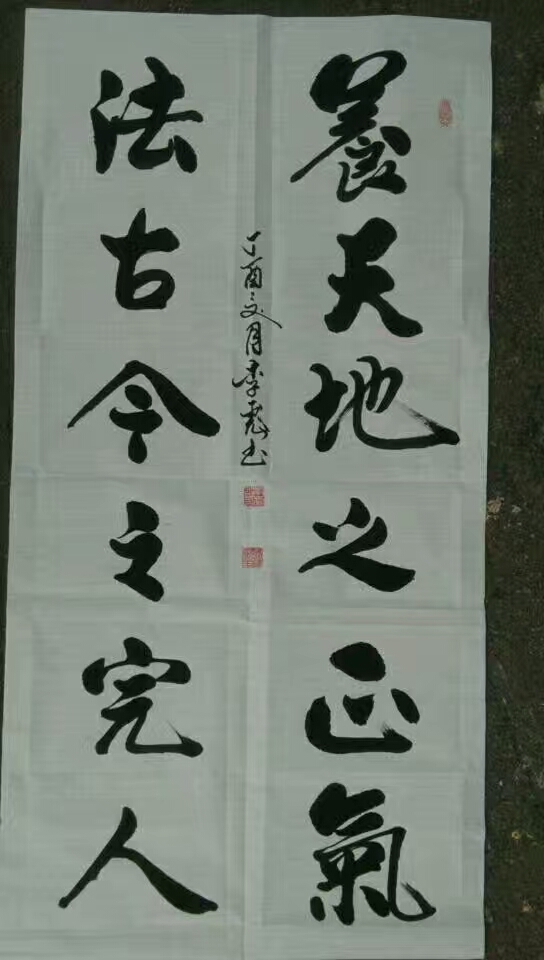 養天地之正氣
法古今之完人
丁酉文月李彪书